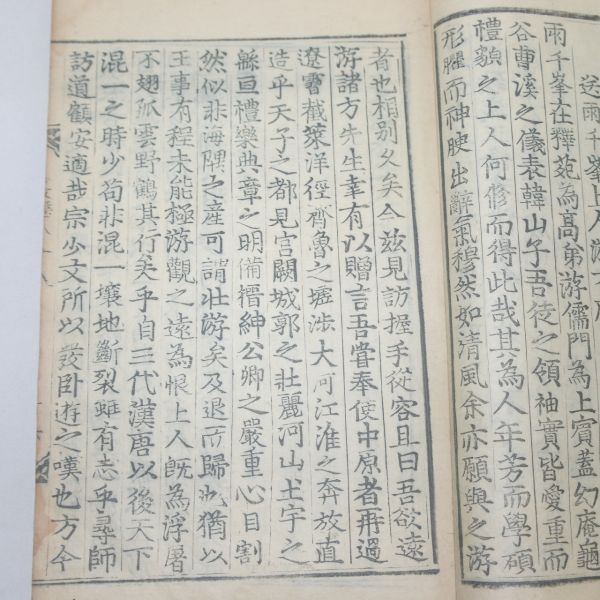 送雨千峯上人游方序
雨千峯在釋苑為高弟游儒門為上賓蓋幻庵龜
谷曹溪之儀表韓山子吾徒之領袖實皆愛重而
禮貌之上人何修而得此哉其為人年芳而學碩
形臞而神腴出辭氣穆然如清風余亦願與之游
者也相別久矣今玆見訪握手從容且曰吾欲遠
游諸方先生幸有以贈言吾嘗奉使中原者再過
遼霫截萊洋徑齊魯之墟涉大河江淮之奔放直
造乎天子之都見宮闕城郭之壯麗河山土宇之
緜亘禮樂典章之明備搢紳公卿之嚴重心目割
然似非海隅之產可謂壯游矣及退而歸也猶以
王事有程未能極游觀之遠為恨上人旣為浮屠
不翅孤雲野鶴其行矣乎自三代漢唐以後天下
混一之時少苟非混一壤地斷裂雖有志乎尋師
訪道顧安適哉宗少文所以發卧遊之嘆也方今